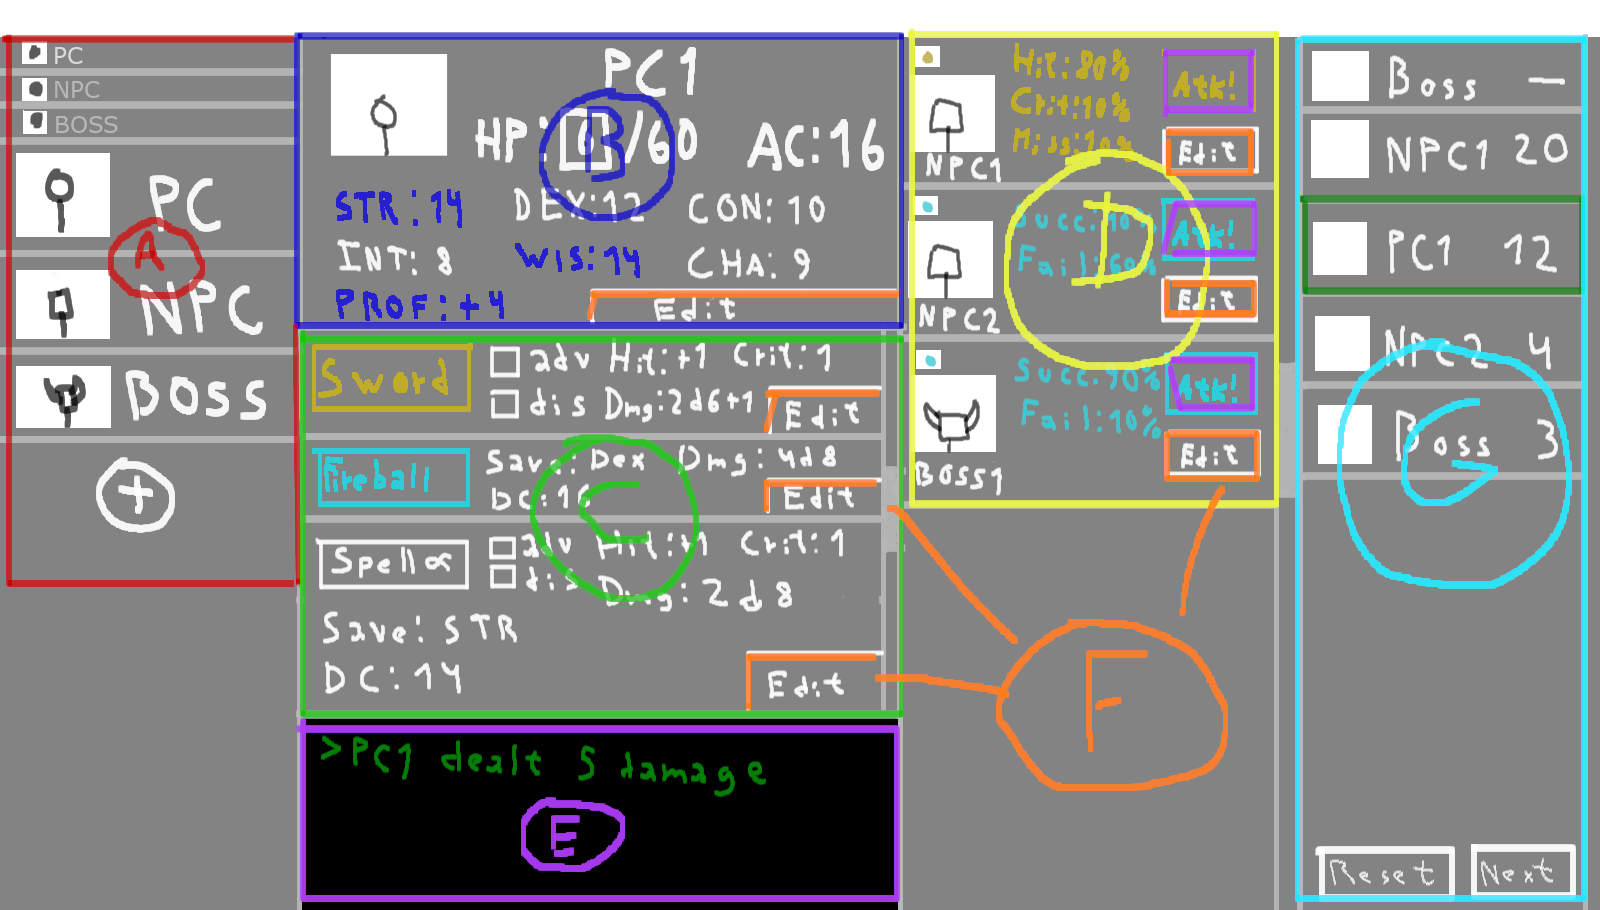 PC
NPC
BOSS
PC
A
NPC
BOSS
+
PC1
HP: /60 AC:16
B
STR:14 DEX:12 CON:10
INT:8 WIS:14 CHA:9
PROF:+4 Edit
Sword
adv Hit:+1 Crit:1
dis Dmg:2d6+1
Edit
Fireball
Save:Dex Dmg:4d8
DC:16
Edit
C
Spell∝
adv Hit:+1 Crit:1
dis Dmg:2d8
Save:STR
DC:14
Edit
>PC1 dealt 5 damage
E
Hit:80%
Crit:10%
Miss:10%
Atk!
Edit
NPC1
D
Succ:40%
Fail:60%
Atk!
Edit
NPC2
Succ:90%
Fail:10%
Atk!
Edit
BOSS1
F
Boss —
NPC1 20
PC1 12
NPC2 4
Boss 3
G
Reset Next